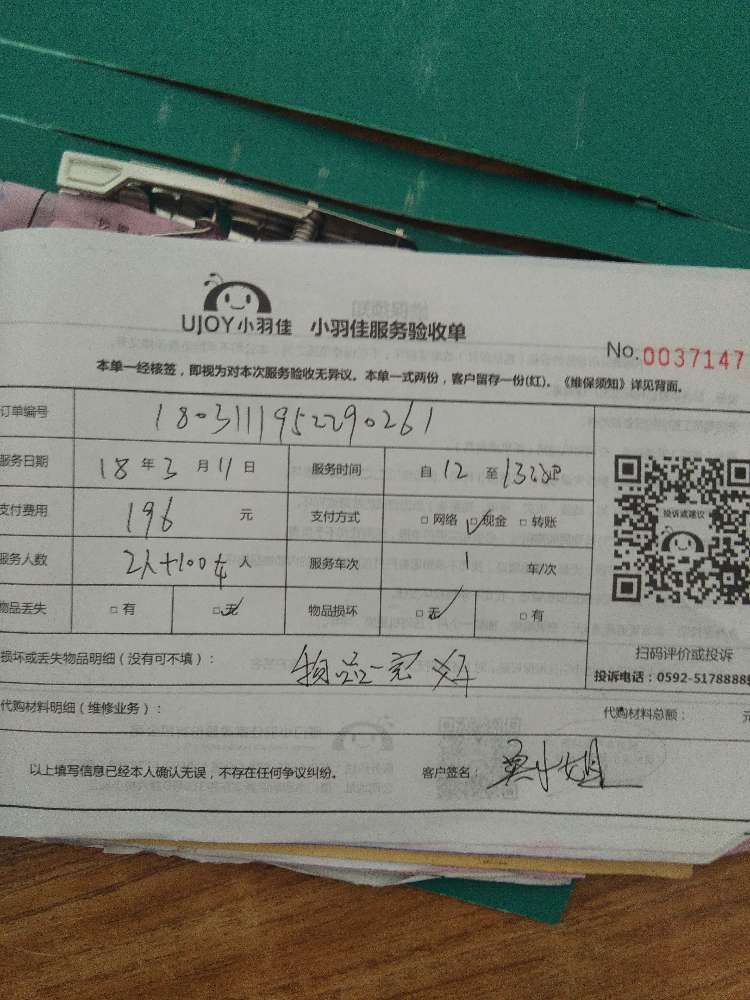 UJOY小羽佳 小羽佳服务验收单
No.0037147
本单一经核签，即视为对本次服务验收无异议。本单一式两份，客户留存一份(红)。《维保须知》详见背面。
订单编号 1803111952290261
服务日期 18 年 3 月 11 日 服务时间 自 12 至
支付费用 196 元 支付方式 □网络 □现金 □转账
投诉或建议
服务人数 2人+100 人 服务车次 1 车/次
物品丢失 □有 □无 物品损坏 □无 □有
扫码评价或投诉
损坏或丢失物品明细（没有可不填）： 物品一完好
投诉电话：0592-5178888
代购材料明细（维修业务）： 代购材料总额： 元
以上填写信息已经本人确认无误，不存在任何争议纠纷。 客户签名： 小姐